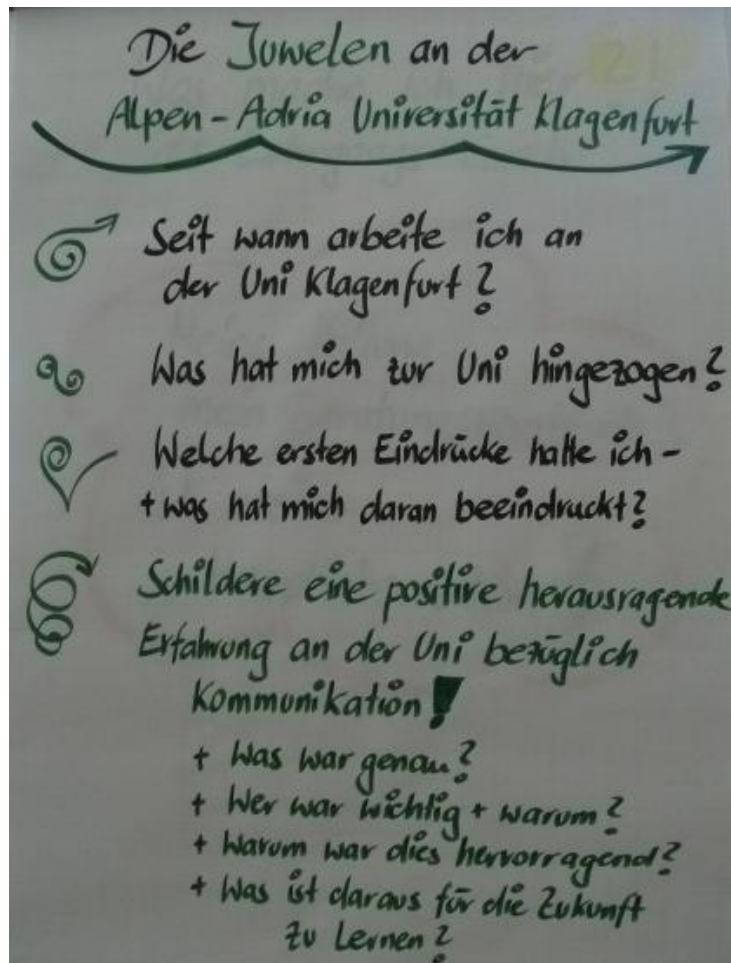 Die Juwelen an der
Alpen-Adria Universität Klagenfurt
Seit wann arbeite ich an
der Uni Klagenfurt?
Was hat mich zur Uni hingezogen?
Welche ersten Eindrücke hatte ich -
+ was hat mich daran beeindruckt?
Schildere eine positive herausragende
Erfahrung an der Uni bezüglich
Kommunikation!
+ Was war genau?
+ Wer war wichtig + warum?
+ Warum war dies hervorragend?
+ Was ist daraus für die Zukunft
zu Lernen?